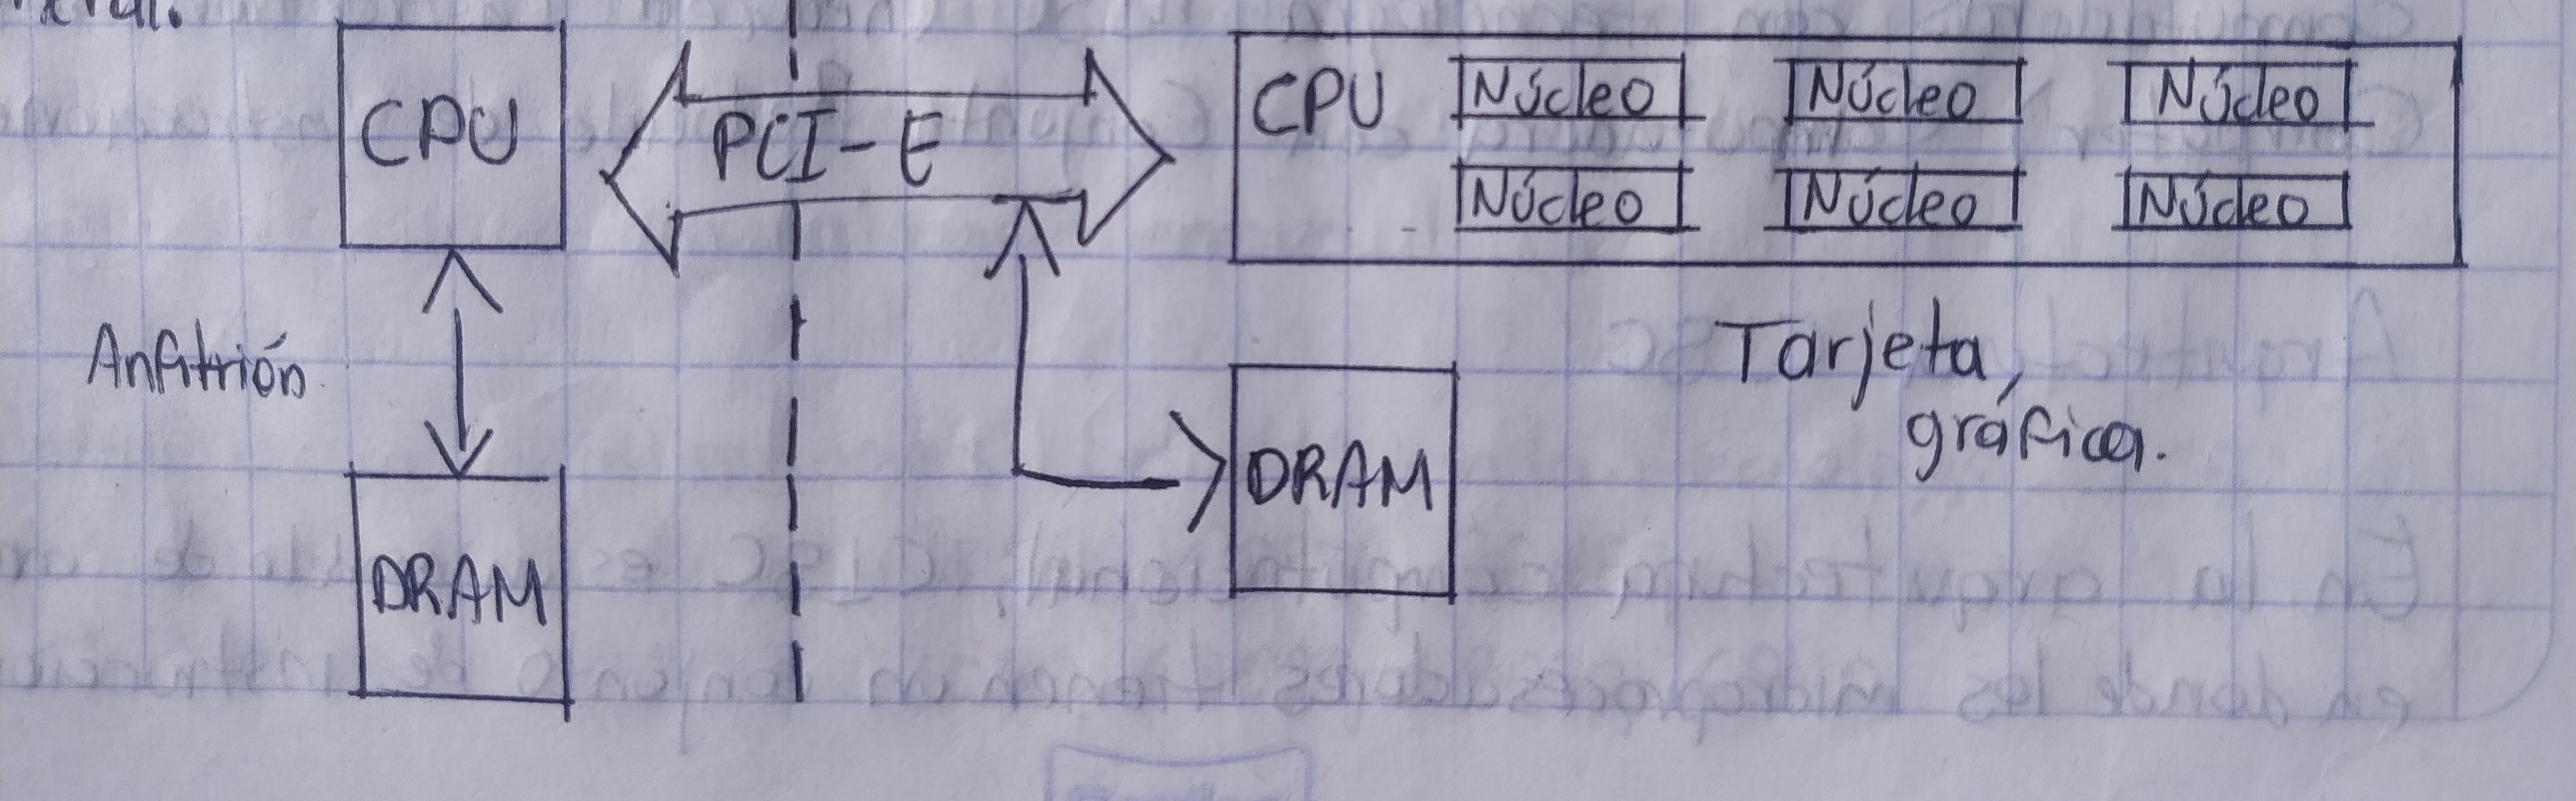 CPU
PCI-E
CPU Núcleo Núcleo Núcleo
Núcleo Núcleo Núcleo
Anfitrión
Tarjeta
gráfica.
DRAM
DRAM